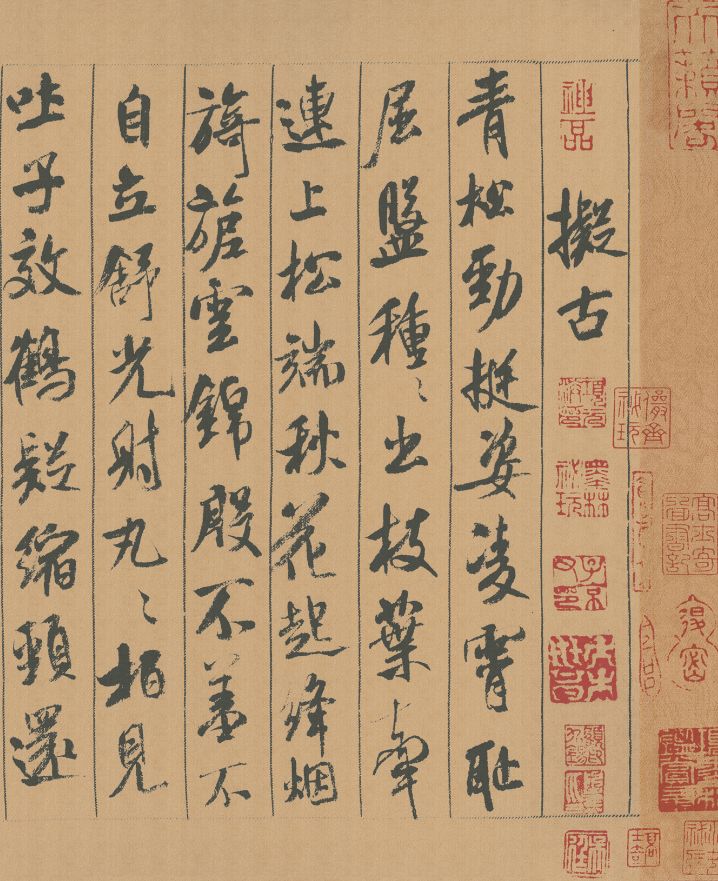 擬古
青松勁挺姿凌霄恥
屈盤種〻出枝葉牽
連上松端秋花起絳烟
旖旎雲錦殷不羞不
自立舒光射丸〻柏見
吐子效鶴疑縮頸還